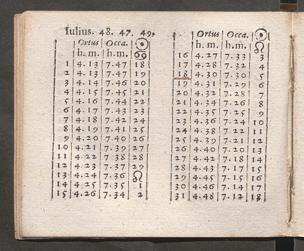 Iulius. 48. 47. 49.
Ortus Occa. ☉
h. m. h. m. ♋
1 4.13 7.47 18
2 4.13 7.47 19
3 4.14 7.46 20
4 4.15 7.45 21
5 4.16 7.44 22
6 4.17 7.43 23
7 4.18 7.42 24
8 4.19 7.41 25
9 4.20 7.40 26
10 4.21 7.39 27
11 4.22 7.38 28
12 4.23 7.37 29
13 4.24 7.36 ♌
14 4.25 7.35 1
15 4.26 7.34 2
Ortus Occa. ☉
h. m. h. m. ♌
16 4.27 7.33 3
17 4.28 7.32 4
18 4.30 7.30 5
19 4.31 7.29 6
20 4.32 7.28 7
21 7.26 8
22 7.25 9
23 4.36 7.24 10
24 4.38 7.22 11
25 12
26 13
27 7.18 14
28 15
29 16
30 17
31 4.48 7.12 18